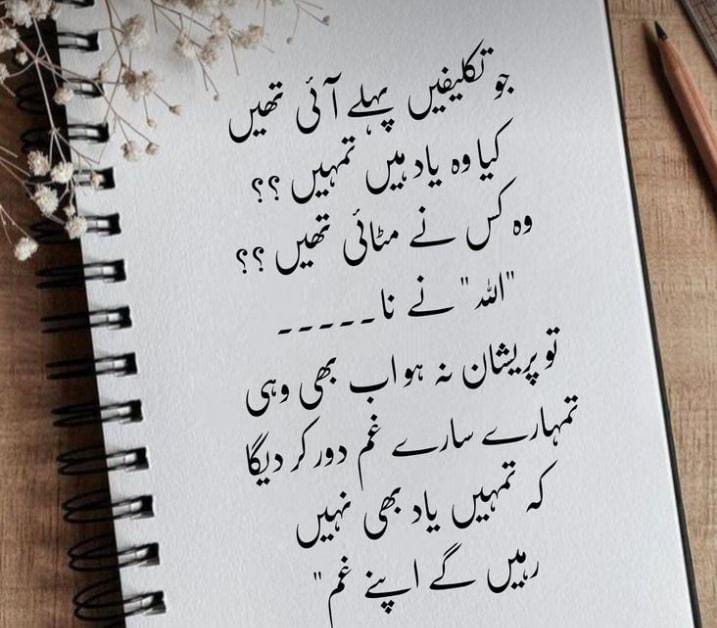 جو تکلیفیں پہلے آئی تھیں
کیا وہ یاد ہیں تمہیں ؟؟
وہ کس نے مٹائی تھیں ؟؟
"اللہ" نے نا-----
تو پریشان نہ ہو اب بھی وہی
تمہارے سارے غم دور کر دیگا
کہ تمہیں یاد بھی نہیں
رہیں گے اپنے غم"